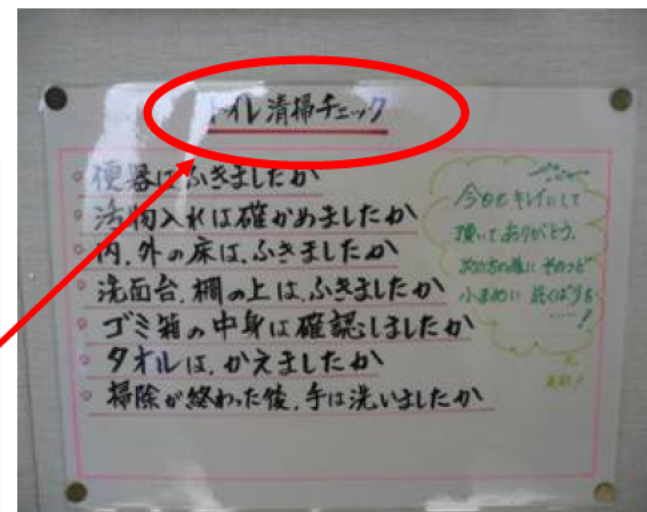 トイレ清掃チェック
便器はふきましたか
汚物入れは確かめましたか
内、外の床は、ふきましたか
洗面台、棚の上は、ふきましたか
ゴミ箱の中身は確認しましたか
タオルは、かえましたか
掃除が終わった後、手は洗いましたか
今日もキレイにして
頂いてありがとう。
次の方の為に そのつど
小まめに 気くばりを
……!